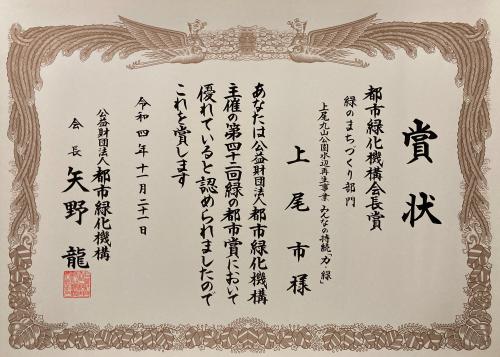 賞状
都市緑化機構会長賞
緑のまちづくり部門
上尾丸山公園水辺再生事業 みんなの持続「力・緑」
上尾市様
あなたは公益財団法人都市緑化機構
主催の第四十二回緑の都市賞において
優れていると認められましたので
これを賞します
令和四年十一月二十一日
公益財団法人都市緑化機構
会長 矢野龍